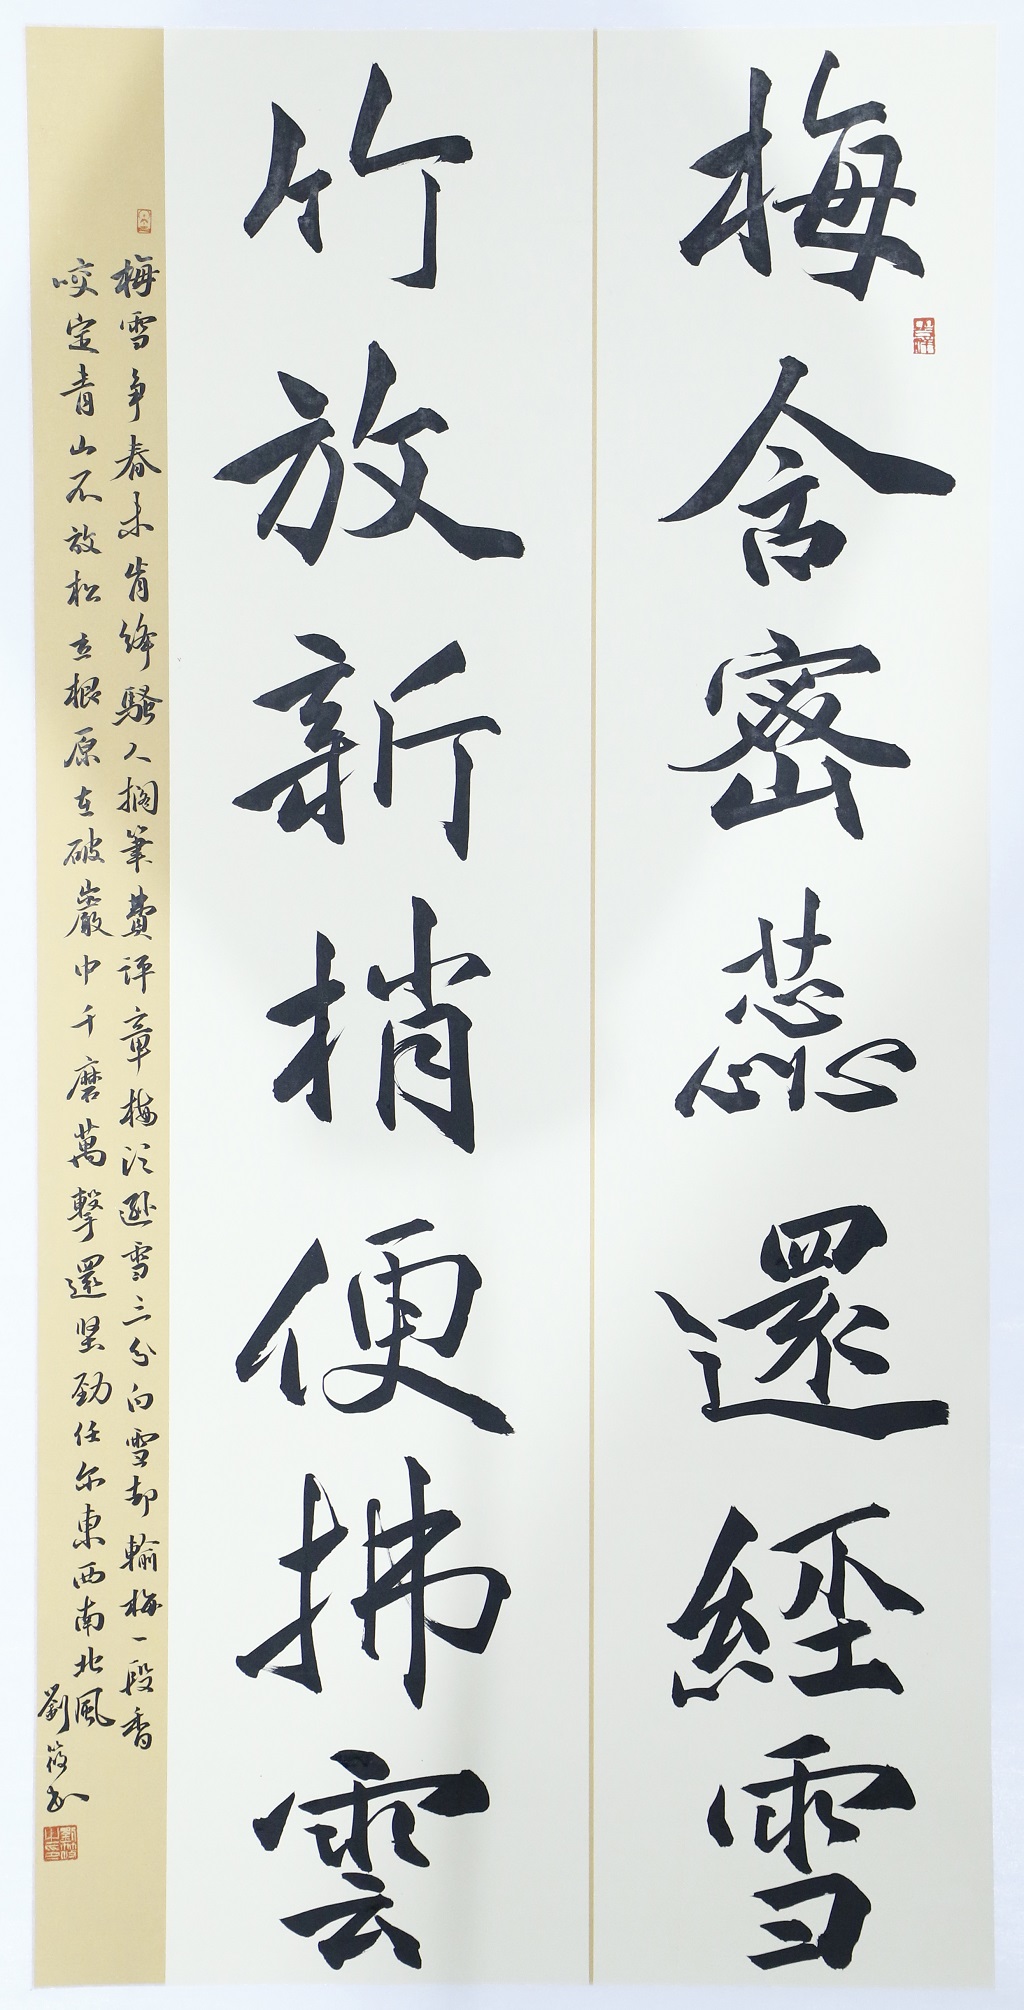 梅含密蕊還經雪
竹放新梢便拂雲
梅雪争春未肯絳騷人擱筆費評章梅須遜雪三分白雪却輸梅一段香
咬定青山不放松立根原在破巖中千磨萬擊還坚劲任尔東西南北風
劉筱书